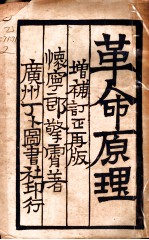 革命原理
增補訂正再版
懷寧邵擎霄著
廣州丁卜圖書社印行